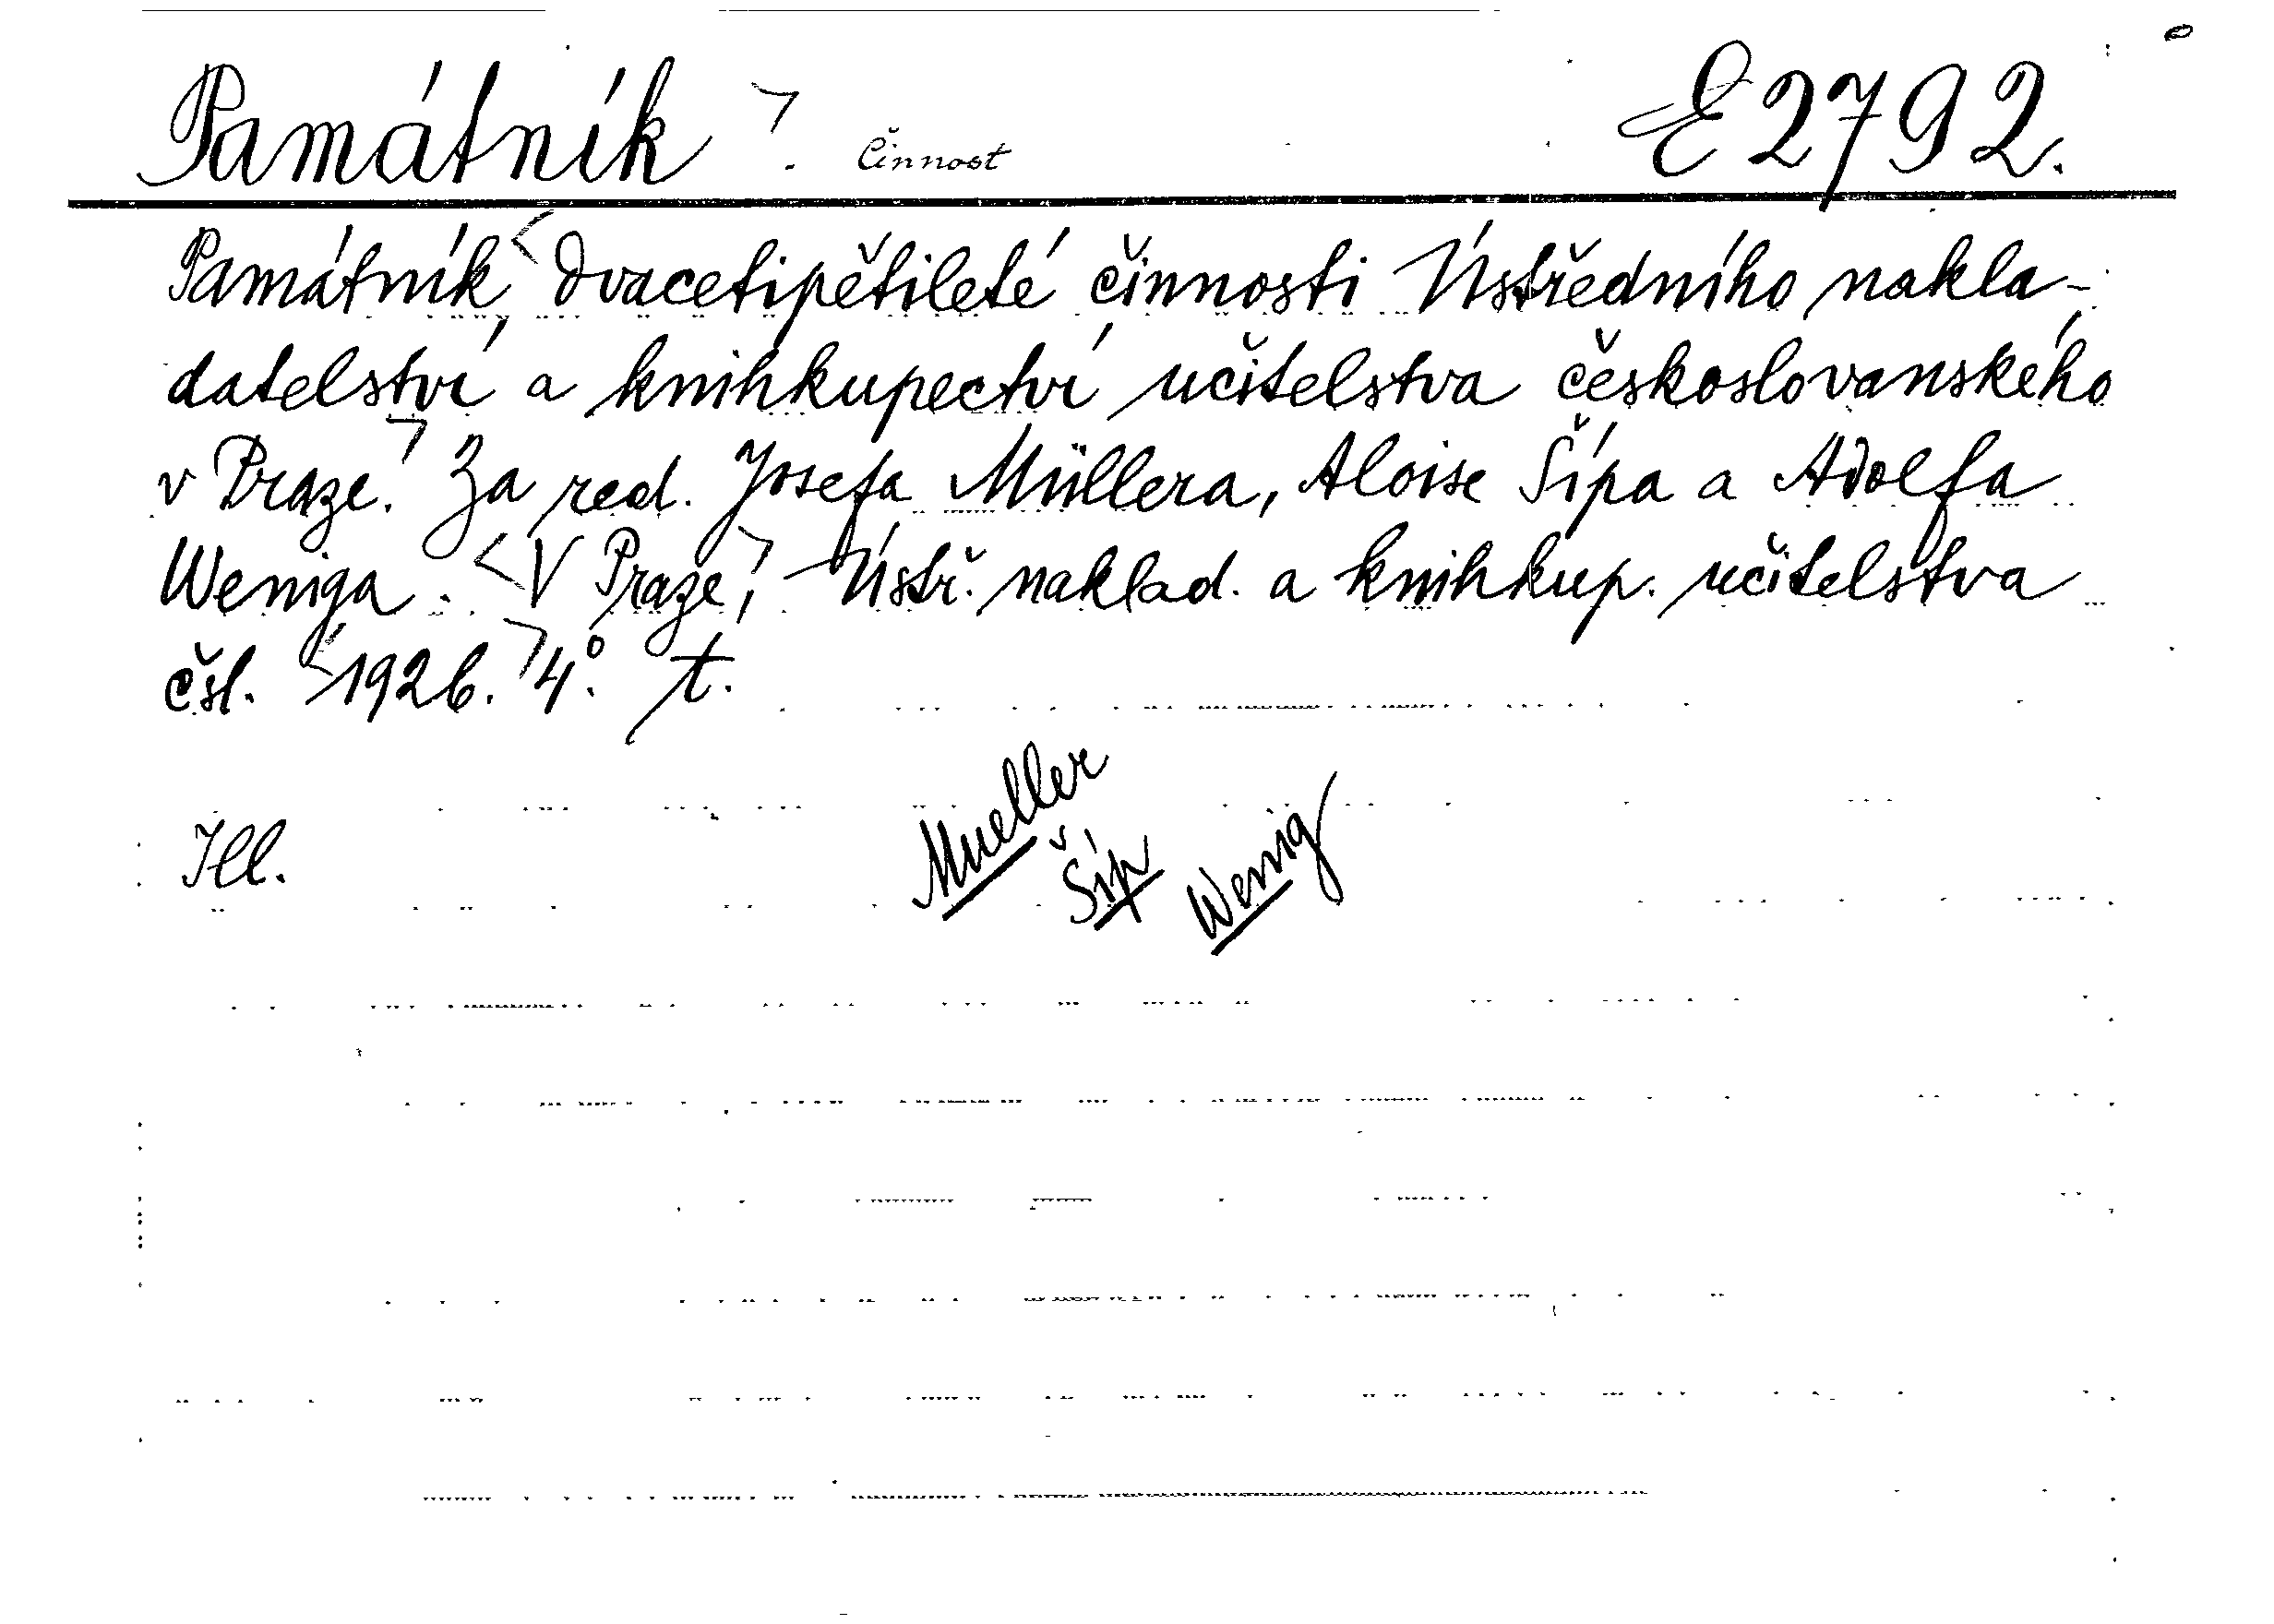 Památník. činnost E 2792.
Památník dvacetipětileté činnosti Ústředního nakla-
datelství a knihkupectví učitelstva československého
v Praze. Za red. Josefa Müllera, Aloise Šípa a Adolfa
Weniga. V Praze, Ústř. naklad. a knihkup. učitelstva
čsl. 1926. 4°. t.
Mueller
Šíp
Wenig
Ill.